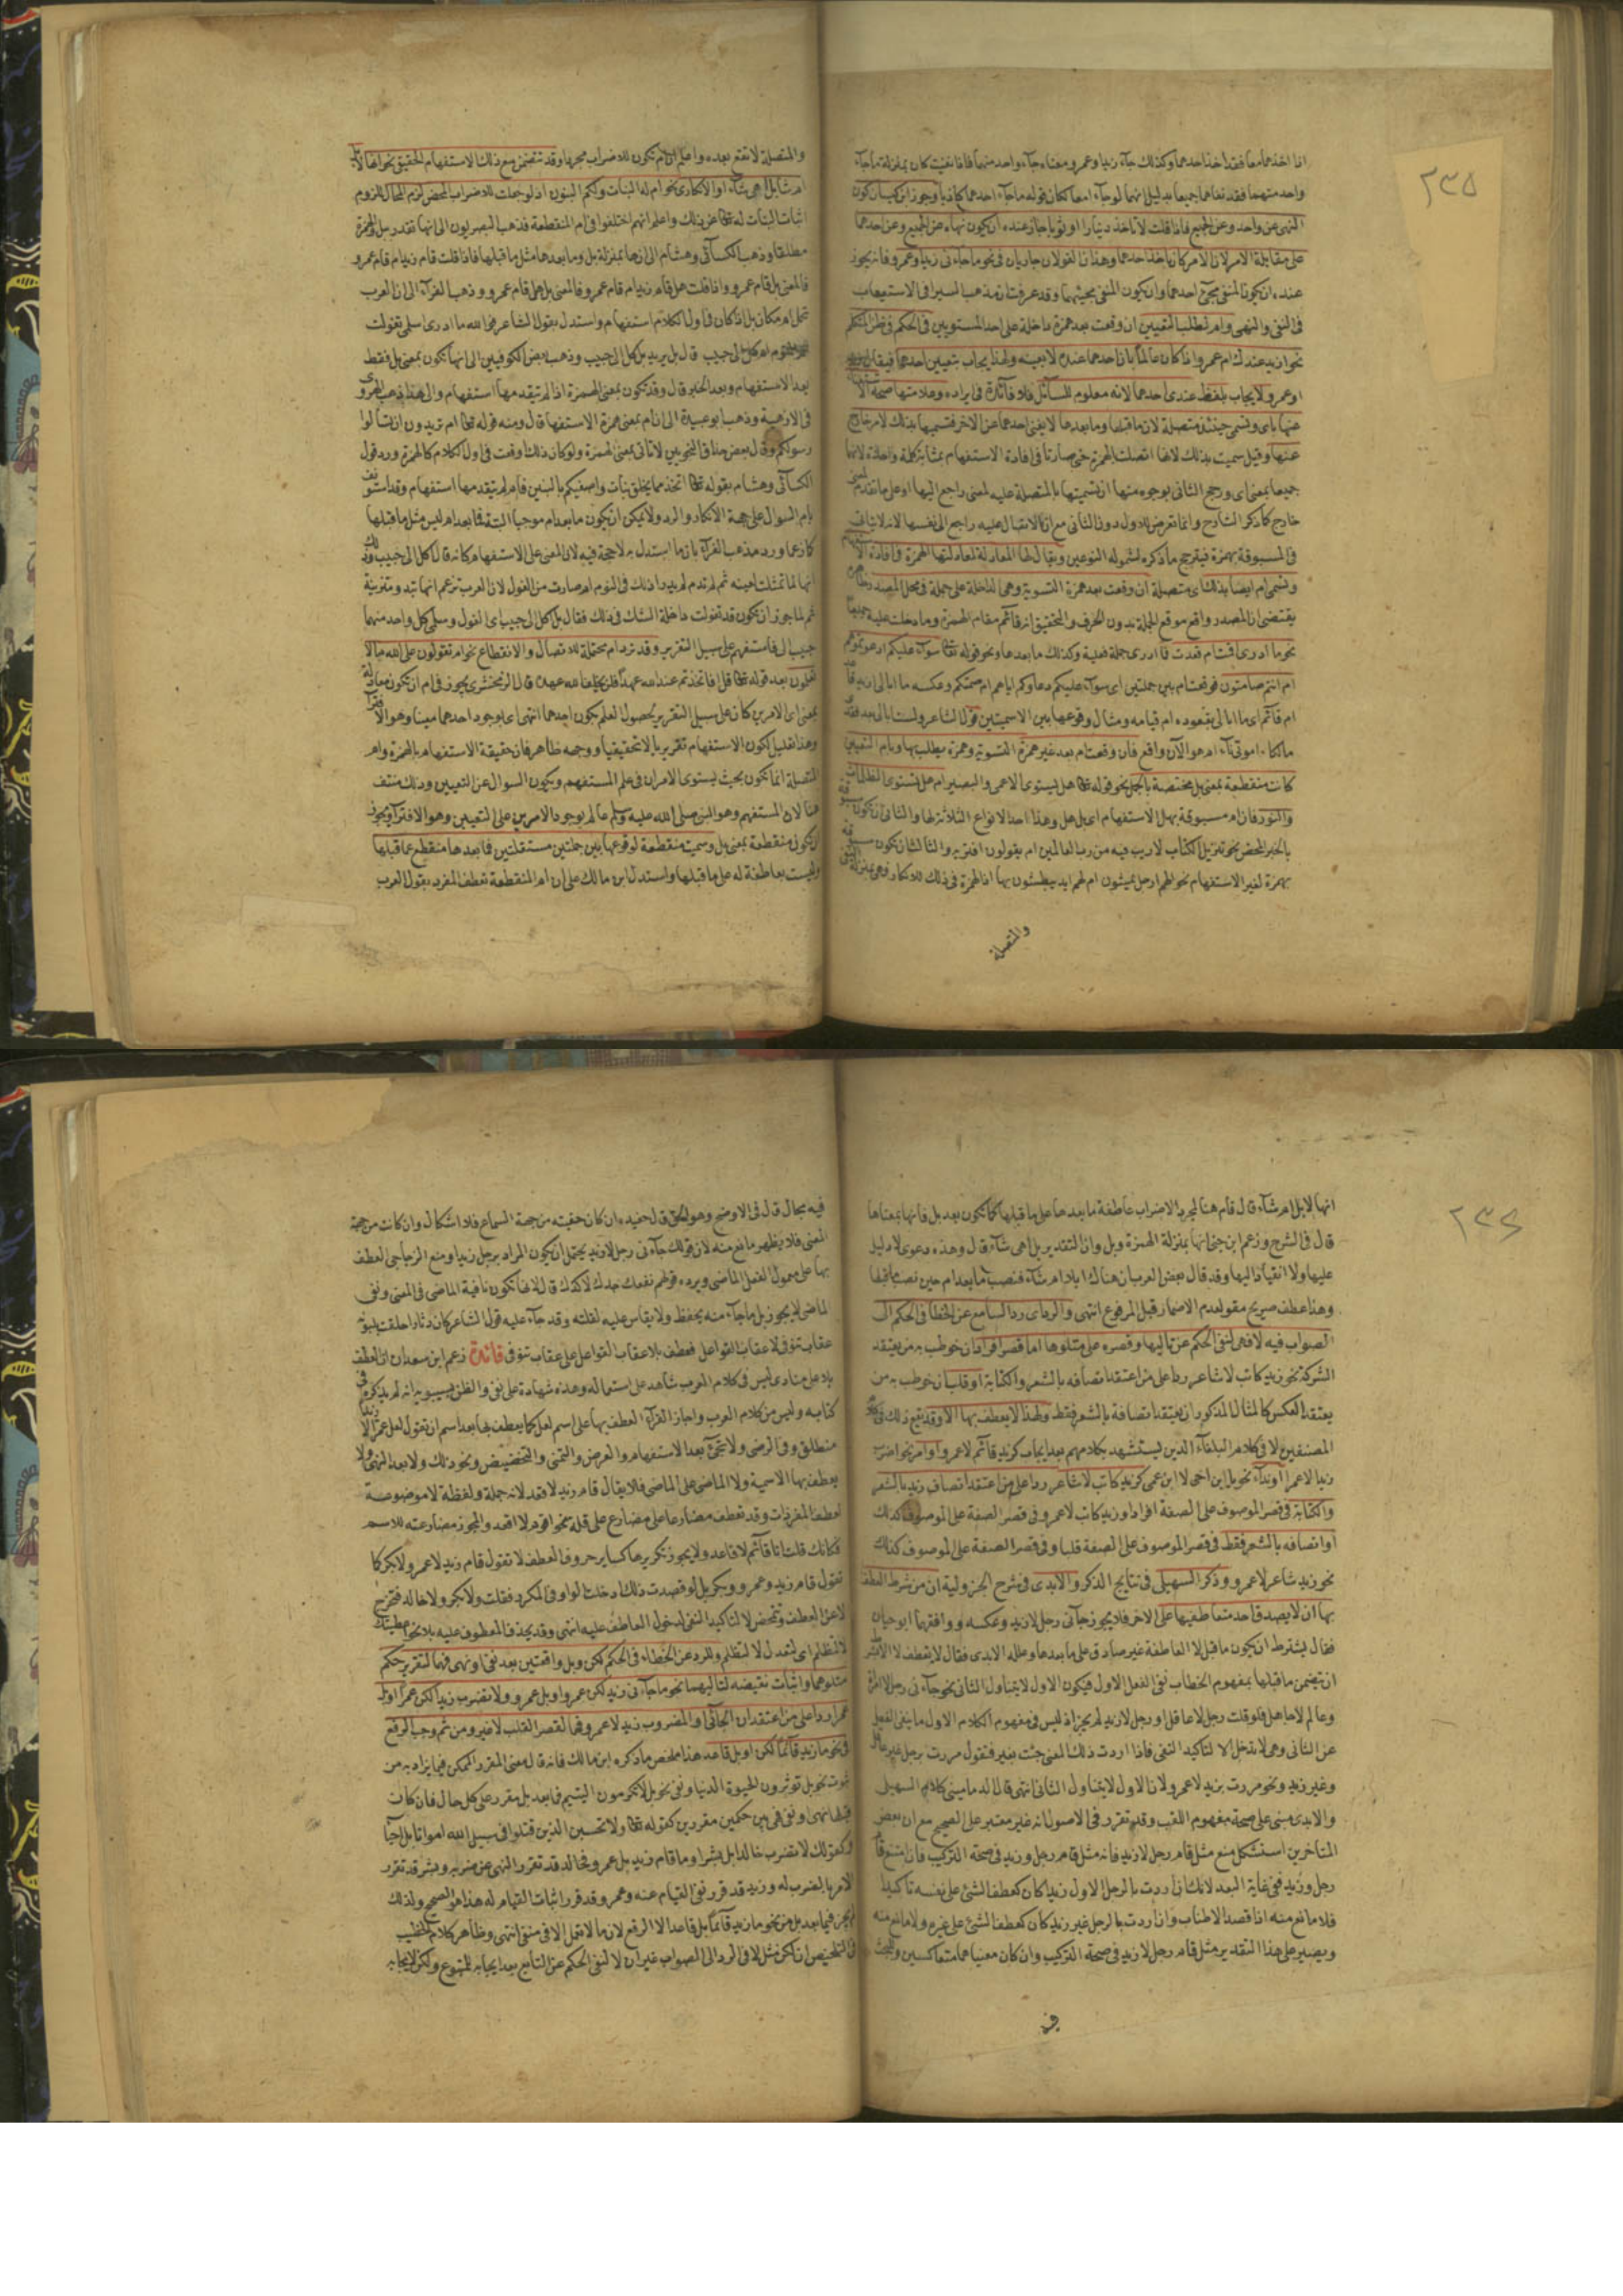 ٢٣٥
اذا اخذهما معا فقد اخذ احدهما وكذلك جاء زيد او عمرو ومعناه جاء واحد منهما فاذا نفيت كان بمنزلة ما جاء
واحد منهما فقد نفاهما جميعا بدليل انهما لو جاءا معا لكان قوله ما جاء احدهما كاذبا وجوز ابن كيسان كون
النهى عن واحد وعن الجميع فاذا قلت لا تاخذ دينارا او ثوبا جاز عنده ان يكون نهاه عن الجميع وعن احدهما
على مقابلة الامر لان الامر كان باخذ احدهما وهذان القولان جاريان فى نحو ما جاءنى زيد او عمرو فانه يجوز
عنده ان يكون المنفى مجئ احدهما وان يكون المنفى مجيئهما وقد عرفت ان مذهب السيرافى الاستيعاب
فى النفى والنهى وام لطلب التعيين ان وقعت بعد همزة داخلة على احد المستويين فى الحكم فى ظن المتكلم
نحو ازيد عندك ام عمرو اذا كان عالما بان احدهما عنده لا بعينه ولهذا يجاب بتعيين احدهما فيقال زيد
او عمرو ولا يجاب بلفظ عندى احدهما لانه معلوم للسائل فلا فائدة فى ايراده وعلامتها صحة الاستغناء
عنها باى وتسمى حينئذ متصلة لان ما قبلها وما بعدها لا يغنى احدهما عن الاخر فتسميتها بذلك لامر خارج
عنها وقيل سميت بذلك لانها اتصلت بالهمزة حتى صارتا فى افادة الاستفهام بمثابة كلمة واحدة لانها
جميعا بمعنى اى ورجح الثانى بوجوه منها ان تسميتها بالمتصلة عليه لمعنى راجع اليها وعلى ما تقدم لمعنى
خارج كما ذكر الشارح وانما تعرض للاول دون الثانى مع ان الاقبال عليه راجع الى نفسها لانه لا يتاتى
فى المسبوقة بهمزة فيترجح ما ذكره لشموله النوعين ويقال لها المعادلة لمعادلتها الهمزة فى افادة الاستفهام
وتسمى ام ايضا بذلك اى متصلة ان وقعت بعد همزة التسوية وهى الداخلة على جملة فى محل المصدر وظاهره
يقتضى ان المصدر واقع موقع الجملة بدون الحرف والتحقيق انه قائم مقام الهمزة وما دخلت عليه جميعا
نحو ما ادرى اقمت ام قعدت فاادرى جملة فعلية وكذلك ما بعدها ونحو قوله تعالى سواء عليكم ادعوتموهم
ام انتم صامتون فوقعت ام بين جملتين اى سواء عليكم دعاؤكم اياهم ام صمتكم وعكسه ما ابالى ازيد قاعد
ام قائم اى ما ابالى بقعوده ام قيامه ومثال وقوعها بين الاسميتين قول الشاعر ولست ابالى بعد فقدى
مالكا اموتى ناء ام هو الآن واقع فان وقعت ام بعد غير همزة التسوية وهمزة يطلب بها وبام التعيين
كانت منقطعة بمعنى بل مختصة بالجمل نحو قوله تعالى هل يستوى الاعمى والبصير ام هل تستوى الظلمات
والنور فان ام مسبوقة بهل الاستفهام اى بل هل وهذا احد الانواع الثلاثة لها والثانى ان تكون مسبوقة
بالخبر المحض نحو تنزيل الكتاب لا ريب فيه من رب العالمين ام يقولون افتريه والثالث ان تكون مسبوقة
بهمزة لغير الاستفهام نحو الهم ارجل يمشون بها ام لهم ايد يبطشون بها اذ الهمزة فى ذلك للانكار وهى بمنزلة النفى
والمتصلة
والمتصلة لا تقع بعده واعلم ان ام تكون للاضراب مجردا وقد تتضمن مع ذلك الاستفهام الحقيقى نحو انها لابل
ام شاء بل اهى شاء او الانكارى نحو ام له البنات ولكم البنون اذ لو جعلت للاضراب المحض لزم المحال للزوم
اثبات البنات له تعالى عن ذلك واعلم انهم اختلفوا فى ام المنقطعة فذهب البصريون الى انها تقدر ببل والهمزة
مطلقا وذهب الكسائى وهشام الى انها بمنزلة بل وما بعدها مثل ما قبلها فاذا قلت قام زيد ام قام عمرو
فالمعنى بل قام عمرو واذا قلت هل قام زيد ام قام عمرو فالمعنى بل هل قام عمرو وذهب الفراء الى ان العرب
تجعل ام مكان بل اذا كان فى اول الكلام استفهام واستدل بقول الشاعر فوالله ما ادرى اسلمى تغولت
ام النوم ام كل الى حبيب قال بل يريد بل كل الى حبيب وذهب بعض الكوفيين الى انها تكون بمعنى بل فقط
بعد الاستفهام وبعد الخبر قال وقد تكون بمعنى الهمزة اذا لم يتقدمها استفهام والى هذا ذهب الهروى
فى الازهية وذهب ابو عبيدة الى ان ام بمعنى همزة الاستفهام قال ومنه قوله تعالى ام تريدون ان تسالوا
رسولكم وقال بعض حذاق النحويين لا تاتى بمعنى الهمزة ولو كان ذلك وقعت فى اول الكلام كالهمزة ورد قول
الكسائى وهشام بقوله تعالى ام اتخذ مما يخلق بنات واصفيكم بالبنين فام لم يتقدمها استفهام وقد استونف
بام السوال على جهة الانكار والرد ولا يمكن ان يكون ما بعد ام موجبا البتة فما بعد ام ليس مثل ما قبلها
كما زعما ورد مذهب الفراء بان ما استدل به لا حجة فيه لان المعنى على الاستفهام كانه قال اكل الى حبيب وذلك
انها لما تمثلت لعينه ثم لم تدم لم يدر اذلك فى النوم ام صارت من الغول لان العرب تزعم انها تبدو متزينة
ثم لما جوز ان تكون قد تغولت داخله الشك فى ذلك فقال بل اكل الى حبيب اى الغول وسلمى كل واحد منهما
حبيب الى فاستفهم على سبيل التقرير وقد ترد ام محتملة للاتصال والانقطاع نحو ام تقولون على الله ما لا
تعلمون بعد قوله تعالى قل اتخذتم عند الله عهدا فلن يخلف الله عهده قال الزمخشرى يجوز فى ام ان تكون معادلة
بمعنى اى الامرين كائن على سبيل التقرير لحصول العلم بكون احدهما انتهى اى بوجود احدهما معينا وهو الافتراء
وهذا تعليل لكون الاستفهام تقريريا لا تحقيقيا ووجهه ظاهر فان حقيقة الاستفهام بالهمزة وام
المتصلة انما تكون بحيث يستوى الامران فى علم المستفهم ويكون السوال عن التعيين وذلك منتف
هنا لان المستفهم وهو النبى صلى الله عليه وسلم عالم بوجود الامرين على التعيين وهو الافتراء ويجوز
ان تكون منقطعة بمعنى بل وسميت منقطعة لوقوعها بين جملتين مستقلتين فما بعدها منقطع عما قبلها
وليست بعاطفة له على ما قبلها واستدل ابن مالك على ان ام المنقطعة تعطف المفرد بقول العرب
٢٣٦
انها لابل ام شاء قال فام هنا لمجرد الاضراب عاطفة ما بعدها على ما قبلها كما تكون بعد بل فانها بمعناها
قال فى الشرح وزعم ابن جنى انها بمنزلة الهمزة وبل وان التقدير بل اهى شاء قال وهذه دعوى لا دليل
عليها ولا انقياد اليها وقد قال بعض العرب ان هناك ابلا ام شاء فنصب ما بعد ام حين نصب ما قبلها
وهذا عطف صريح مقو لعدم الاضمار قبل المرفوع انتهى والرد اى رد السامع عن الخطا فى الحكم الى
الصواب فيه لا فهى لنفى الحكم عن تاليها وقصره على متلوها اما قصر افراد ان خوطب به من يعتقد
الشركة نحو زيد كاتب لا شاعر ردا على من اعتقد اتصافه بالشعر والكتابة او قلب ان خوطب به من
يعتقد العكس كالمثال المذكور ان يعتقد اتصافه بالشعر فقط ولهذا لا يعطف بها الا وقد يقع ذلك فى كلام
المصنفين لا فى كلام البلغاء الذين يستشهد بكلامهم بعد ايجاب كزيد قائم لا عمرو او امر نحو اضرب
زيدا لا عمرا او نداء نحو يا ابن اخى لا ابن عمى كزيد كاتب لا شاعر ردا على من اعتقد اتصاف زيد بالشعر
والكتابة فى قصر الموصوف على الصفة افرادا وزيد كاتب لا عمرو فى قصر الصفة على الموصوف كذلك
او اتصافه بالشعر فقط فى قصر الموصوف على الصفة قلبا وفى قصر الصفة على الموصوف كذلك
نحو زيد شاعر لا عمرو وذكر السهيلى فى نتايج الفكر والابدى فى شرح الجزولية ان من شرط العطف
بها ان لا يصدق احد متعاطفيها على الاخر فلا يجوز جاءنى رجل لا زيد وعكسه ووافقهما ابو حيان
فقال يشترط ان يكون ما قبل لا العاطفة غير صادق على ما بعدها وعلله الابدى فقال لا يعطف بلا الا بشرط
ان يتضمن ما قبلها بمفهوم الخطاب نفى الفعل الاول فيكون الاول لا يتناول الثانى نحو جاءنى رجل لا امراة
وعالم لا جاهل فلو قلت رجل لا عاقل او رجل لا زيد لم يجز اذ ليس فى مفهوم الكلام الاول ما ينفى الفعل
عن الثانى وهى لا تدخل الا لتاكيد النفى فاذا اردت ذلك المعنى جئت بغير فتقول مررت برجل غير عاقل
وغير زيد ونحو مررت بزيد لا عمرو لان الاول لا يتناول الثانى انتهى قال الدمامينى كلام السهيلى
والابدى مبنى على صحة مفهوم اللقب وقد تقرر فى الاصول انه غير معتبر على الصحيح مع ان بعض
المتاخرين استشكل منع مثل قام رجل لا زيد فانه مثل قام رجل وزيد فى صحة التركيب فان امتنع قام
رجل وزيد ففى غاية البعد لانك ان اردت بالرجل الاول زيدا كان كعطف الشئ على نفسه تاكيدا
فلا مانع منه اذا قصد الاطناب وان اردت بالرجل غير زيد كان كعطف الشئ على غيره ولا مانع منه
ويصير على هذا التقدير مثل قام رجل لا زيد فى صحة التركيب وان كان معنياهما متعاكسين وللبحث
فيه
فيه مجال قال فى الاوضح وهو الحق قال حفيده ان كان حقيته من جهة السماع فلا اشكال وان كانت من جهة
المعنى فلا يظهر ما نع منه لان قولك جاءنى رجل لا زيد يحتمل ان يكون المراد برجل زيدا ومنع الزجاجى العطف
بها على معمول الفعل الماضى ويرده قولهم نفعك جدك لا كدك قال لانها تكون نافية الماضى فى المعنى ونفى
الماضى لا يجوز بل ما جاء منه يحفظ ولا يقاس عليه لقلته وقد جاء عليه قول الشاعر كان دثارا حلقت بلبونه
عقاب تنوفى لا عقاب القواعل فعطف بلا عقاب القواعل على عقاب تنوفى فائدة زعم ابن سعدان ان العطف
بلا على منادى ليس فى كلام العرب شاهد على استعماله وهذه شهادة على نفى والظن بسيبويه انه لم يذكره فى
كتابه وليس من كلام العرب واجاز الفراء العطف بها على اسم لعل كما يعطف بها بعد اسم ان تقول لعل عمرا لا زيدا
منطلق وفى الرضى ولا تجئ بعد الاستفهام والعرض والتمنى والتحضيض ونحو ذلك ولا بعد النهى ولا
يعطف بها الاسمية ولا الماضى على الماضى فلا يقال قام زيد لا قعد لانه جملة ولفظة لا موضوعة
لعطف المفردات وقد تعطف مضارعا على مضارع على قلة نحو اقوم لا اقعد والمجوز مضارعته للاسم
فكانك قلت انا قائم لا قاعد ولا يجوز تكريرها كساير حروف العطف لا تقول قام زيد لا عمرو لا بكر كما
تقول قام زيد وعمرو وبكر بل لو قصدت ذلك ادخلت الواو فى المكرر فقلت ولا بكر ولا خالد فتخرج
لا عن العطف وتتمحض لا لتاكيد النفى لدخول العاطف عليه انتهى وقد يحذف المعطوف عليه بلا نحو اعطيتك
لا لتظلم اى لتعدل لا لتظلم وللرد عن الخطاء فى الحكم لكن وبل واقعتين بعد نفى او نهى فهما لتقرير حكم
متلوهما واثبات نقيضه لتاليهما نحو ما جاءنى زيد لكن عمرو او بل عمرو ولا تضرب زيدا لكن عمرا او بل
عمرا ردا على من اعتقد ان الجائى او المضروب زيد لا عمرو فهما لقصر القلب لا غير ومن ثم وجب الرفع
فى نحو ما زيد قائما لكن او بل قاعد هذا ملخص ما ذكره ابن مالك فانه قال معنى المقرر الممكن فيما يزاد به من
ثبوت نحو بل توثرون الحيوة الدنيا ونفى نحو بل لا تكرمون اليتيم فما بعد بل مقرر على كل حال فان كان
قبلها نهى او نفى فهى بين حكمين مقررين كقوله تعالى ولا تحسبن الذين قتلوا فى سبيل الله امواتا بل احياء
وكقولك لا تضرب خالدا بل بشرا وما قام زيد بل عمرو فخالد قد تقرر النهى عن ضربه وبشر قد تقرر
الامر بالضرب له وزيد قد قرر نفى القيام عنه وعمرو قد قرر اثبات القيام له هذا هو الصحيح ولذلك
لم يجز فيما بعد بل من نحو ما زيد قائما بل قاعدا الا الرفع لان ما لا تعمل الا فى منفى انتهى وظاهر كلام الخطيب
فى التلخيص ان لكن مثل لا فى الرد الى الصواب غير ان لا لنفى الحكم عن التابع بعد ايجابه للمتبوع ولكن لايجابه